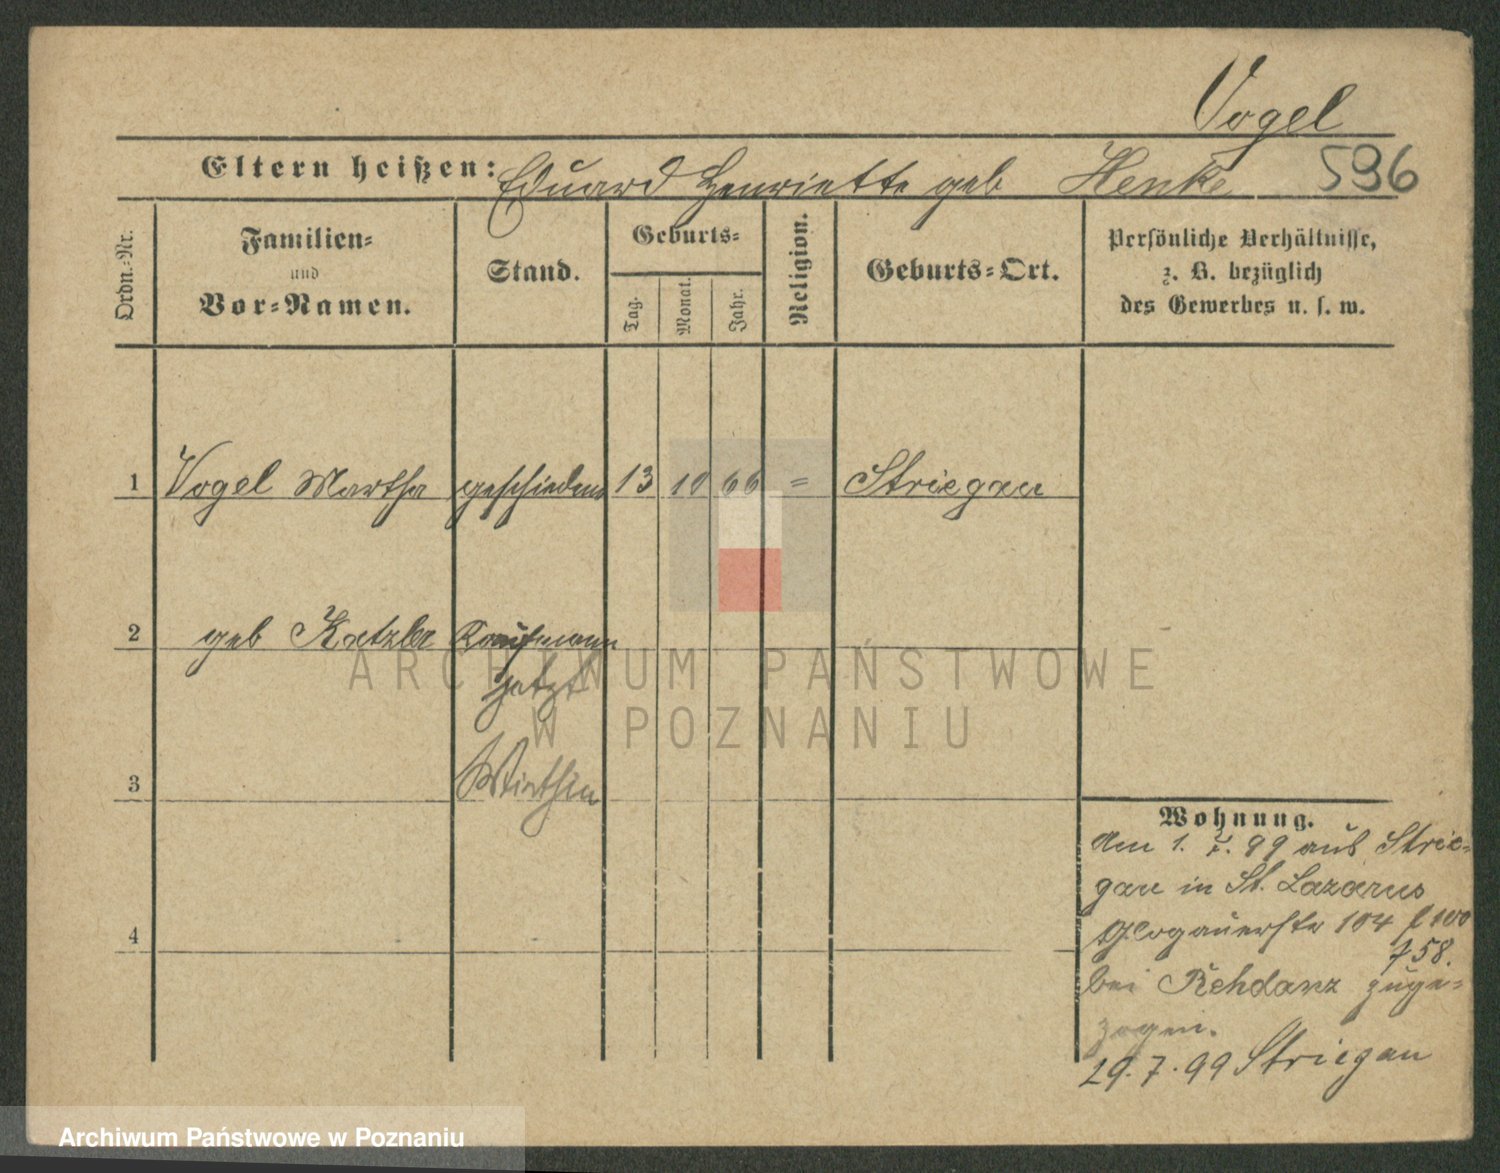 Vogel
Eltern heißen: Eduard Henriette geb Henke 596
Ordn.-Nr.
Familien-
und
Vor-Namen.
Stand.
Geburts-
Tag.
Monat.
Jahr.
Religion.
Geburts-Ort.
Persönliche Verhältnisse,
z. B. bezüglich
des Gewerbes u. s. w.
1 Vogel Martha geschiedene 13 10 66 = Striegau
2 geb Katzler Kaufmann
jetzt
3 Wirthin
4
Wohnung.
Am 1. 7. 99 aus Strie-
gau in St. Lazarus
Glogauerstr 104 f 100
758.
bei Rehdanz zuge-
zogen.
29. 7. 99 Striegau
ARCHIWUM PAŃSTWOWE
W POZNANIU
Archiwum Państwowe w Poznaniu